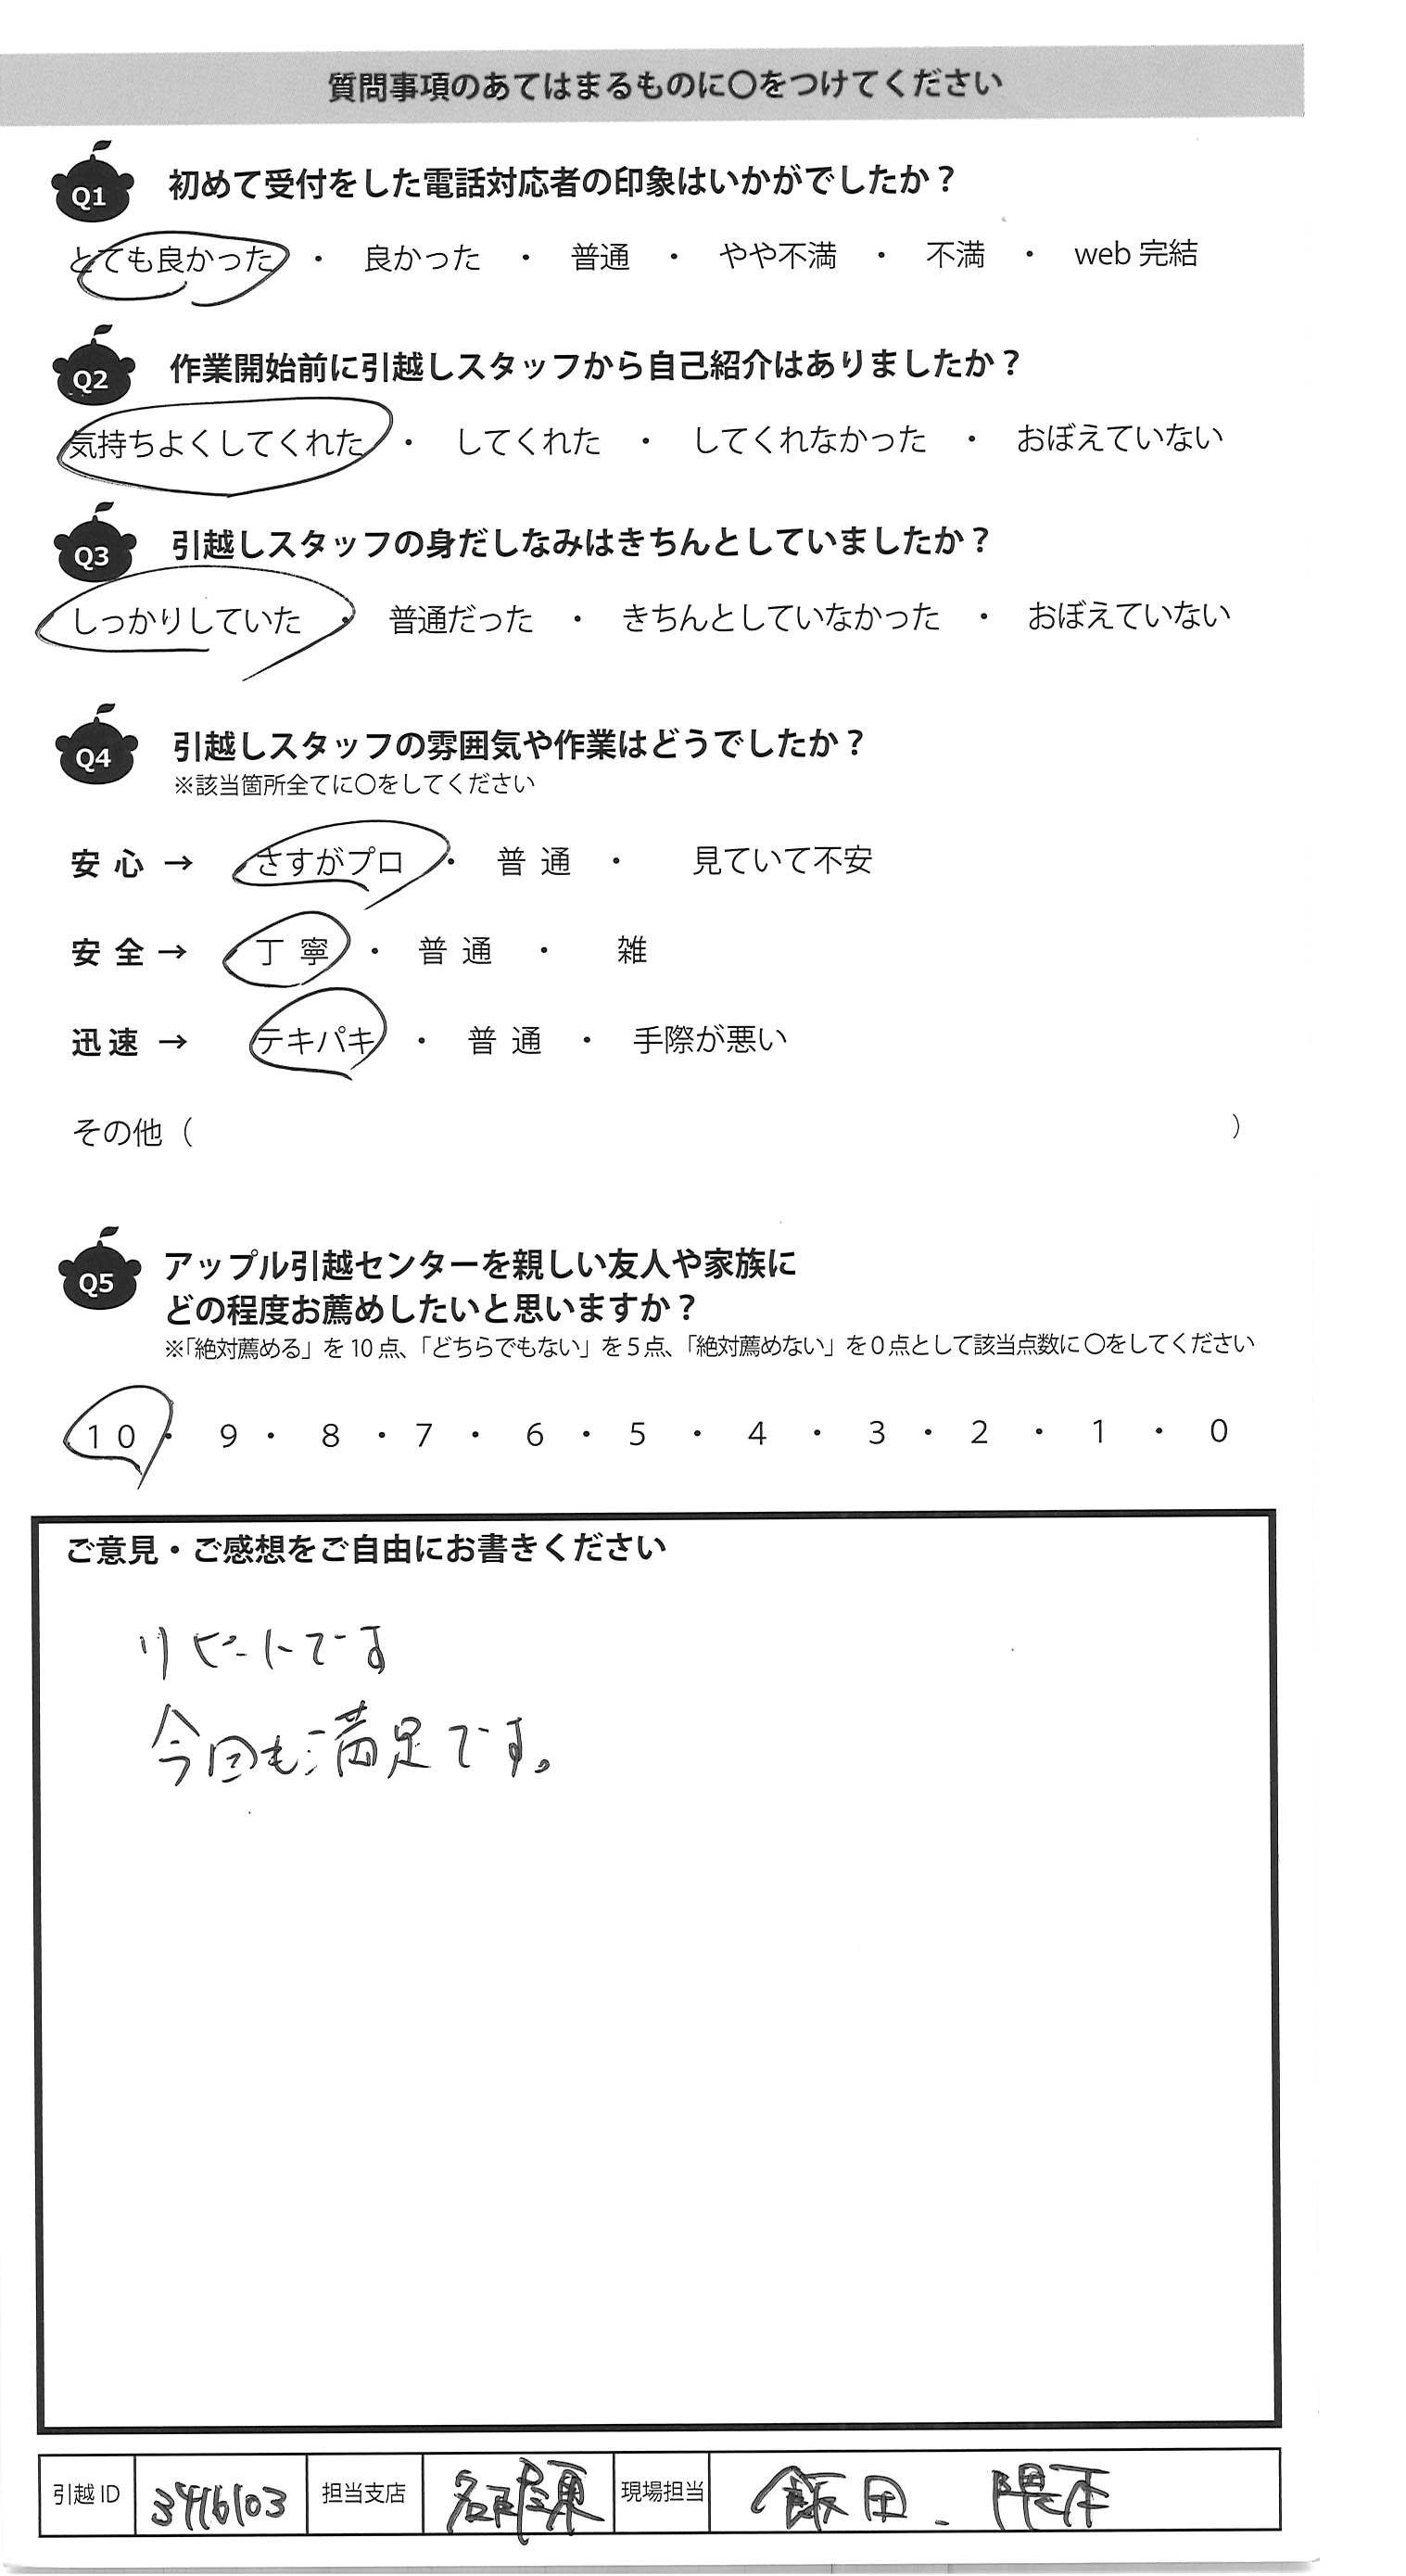 質問事項のあてはまるものに〇をつけてください
Q1 初めて受付をした電話対応者の印象はいかがでしたか？
とても良かった ・ 良かった ・ 普通 ・ やや不満 ・ 不満 ・ web 完結
Q2 作業開始前に引越しスタッフから自己紹介はありましたか？
気持ちよくしてくれた ・ してくれた ・ してくれなかった ・ おぼえていない
Q3 引越しスタッフの身だしなみはきちんとしていましたか？
しっかりしていた ・ 普通だった ・ きちんとしていなかった ・ おぼえていない
Q4 引越しスタッフの雰囲気や作業はどうでしたか？
※該当箇所全てに〇をしてください
安心 → さすがプロ ・ 普通 ・ 見ていて不安
安全 → 丁寧 ・ 普通 ・ 雑
迅速 → テキパキ ・ 普通 ・ 手際が悪い
その他（ ）
Q5 アップル引越センターを親しい友人や家族に
どの程度お薦めしたいと思いますか？
※「絶対薦める」を 10 点、「どちらでもない」を 5 点、「絶対薦めない」を 0 点として該当点数に 〇をしてください
10 ・ 9 ・ 8 ・ 7 ・ 6 ・ 5 ・ 4 ・ 3 ・ 2 ・ 1 ・ 0
ご意見・ご感想をご自由にお書きください
リピートです
今回も満足です。
引越 ID 3416103 担当支店 現場担当 飯田、隈本